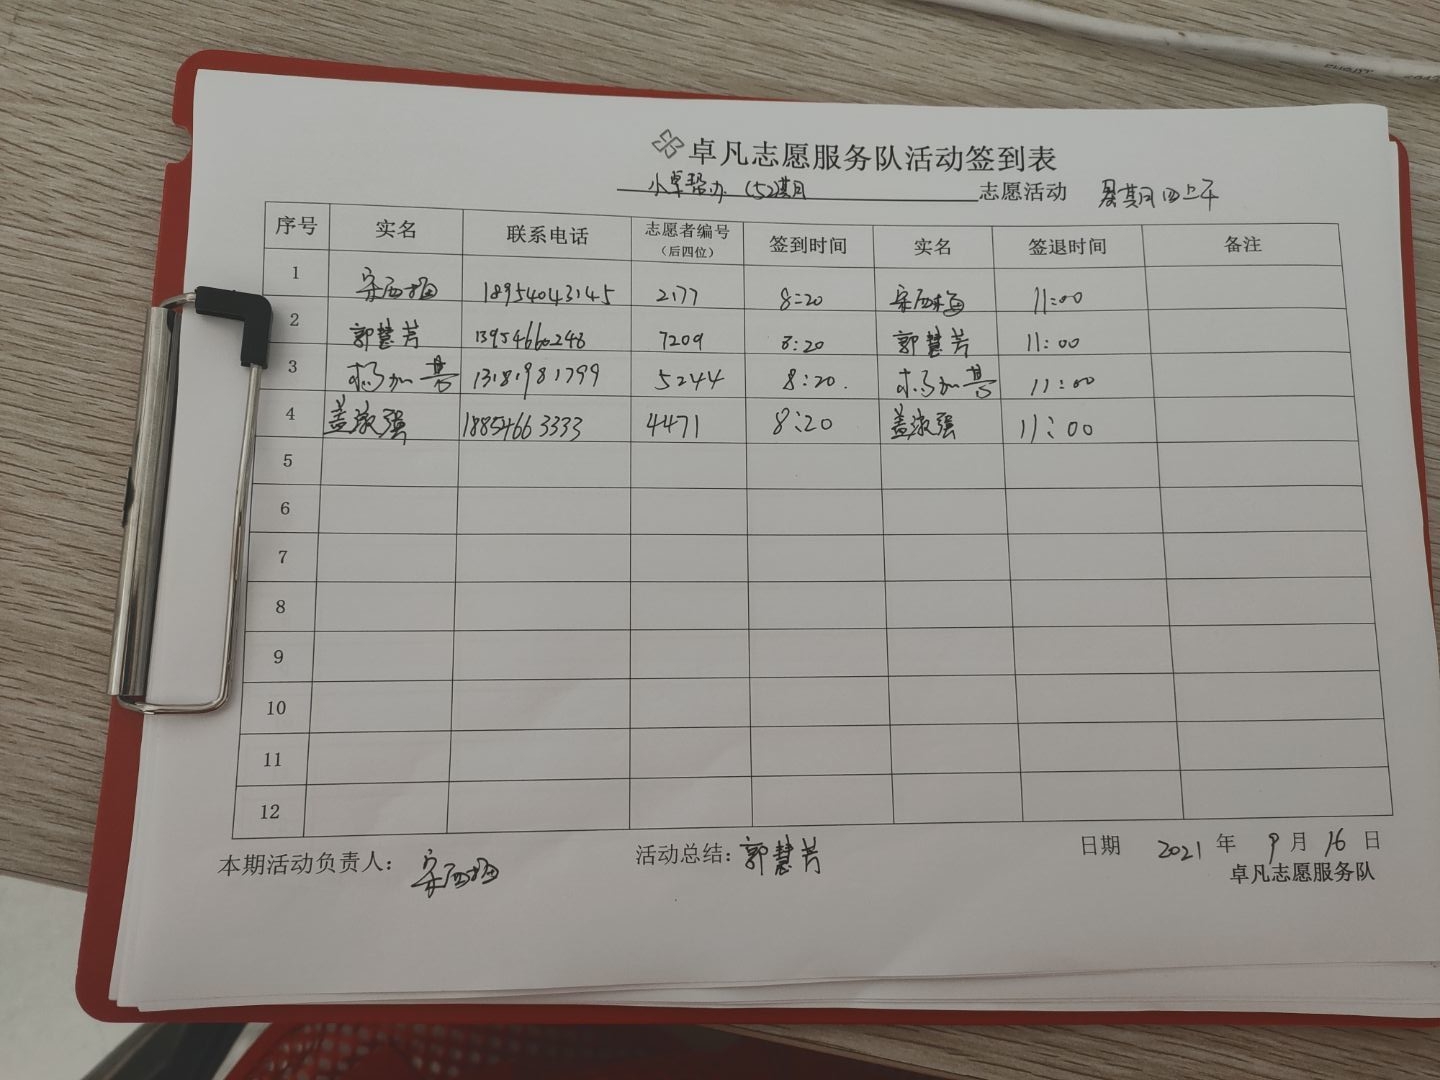 卓凡志愿服务队活动签到表
小卓帮办 152期 志愿活动 星期四上午
序号 实名 联系电话 志愿者编号（后四位） 签到时间 实名 签退时间 备注
1 宋西梅 18954043145 2177 8:20 宋西梅 11:00
2 郭慧芳 13954660248 7209 8:20 郭慧芳 11:00
3 杨加善 13181981799 5244 8:20. 杨加善 11:00
4 盖淑强 18854663333 4471 8:20 盖淑强 11:00
5
6
7
8
9
10
11
12
本期活动负责人：宋西梅 活动总结：郭慧芳 日期 2021 年 9 月 16 日
卓凡志愿服务队